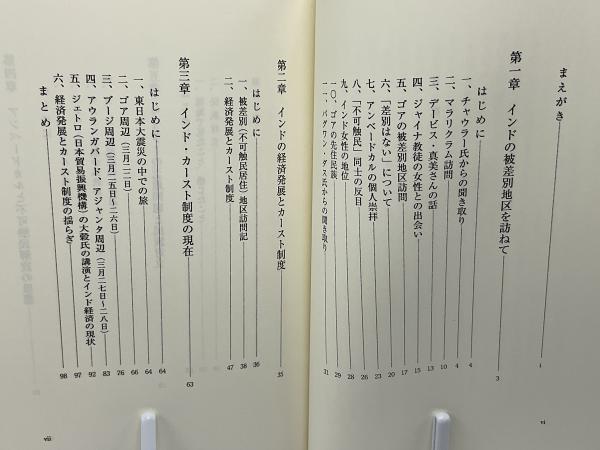 まえがき 1
第一章 インドの被差別地区を訪ねて 3
はじめに 4
一、チャウラー氏からの聞き取り 4
二、マラリクラム訪問 10
三、デービス・真美さんの話 13
四、ジャイナ教徒の女性との出会い 15
五、ゴアの被差別地区訪問 17
六、「差別はない」について 20
七、アンベードカルの個人崇拝 23
八、「不可触民」同士の反目 26
九、インド女性の地位 28
一〇、ゴアの先住民族 29
一一、バグワン・ダス氏からの聞き取り 31
vi
第二章 インドの経済発展とカースト制度 35
はじめに 36
一、被差別(不可触民居住)地区訪問記 38
二、経済発展とカースト制度 47
第三章 インド・カースト制度の現在 63
はじめに 64
一、東日本大震災の中での旅 64
二、ゴア周辺(三月二二日) 66
三、ブージ周辺(三月二五日~二六日) 76
四、アウランガバード、アジャンタ周辺(三月二七日~二八日) 83
五、ジェトロ(日本貿易振興機構)の大穀氏の講演とインド経済の現状 92
六、経済発展とカースト制度の揺らぎ 97
まとめ 98
vii